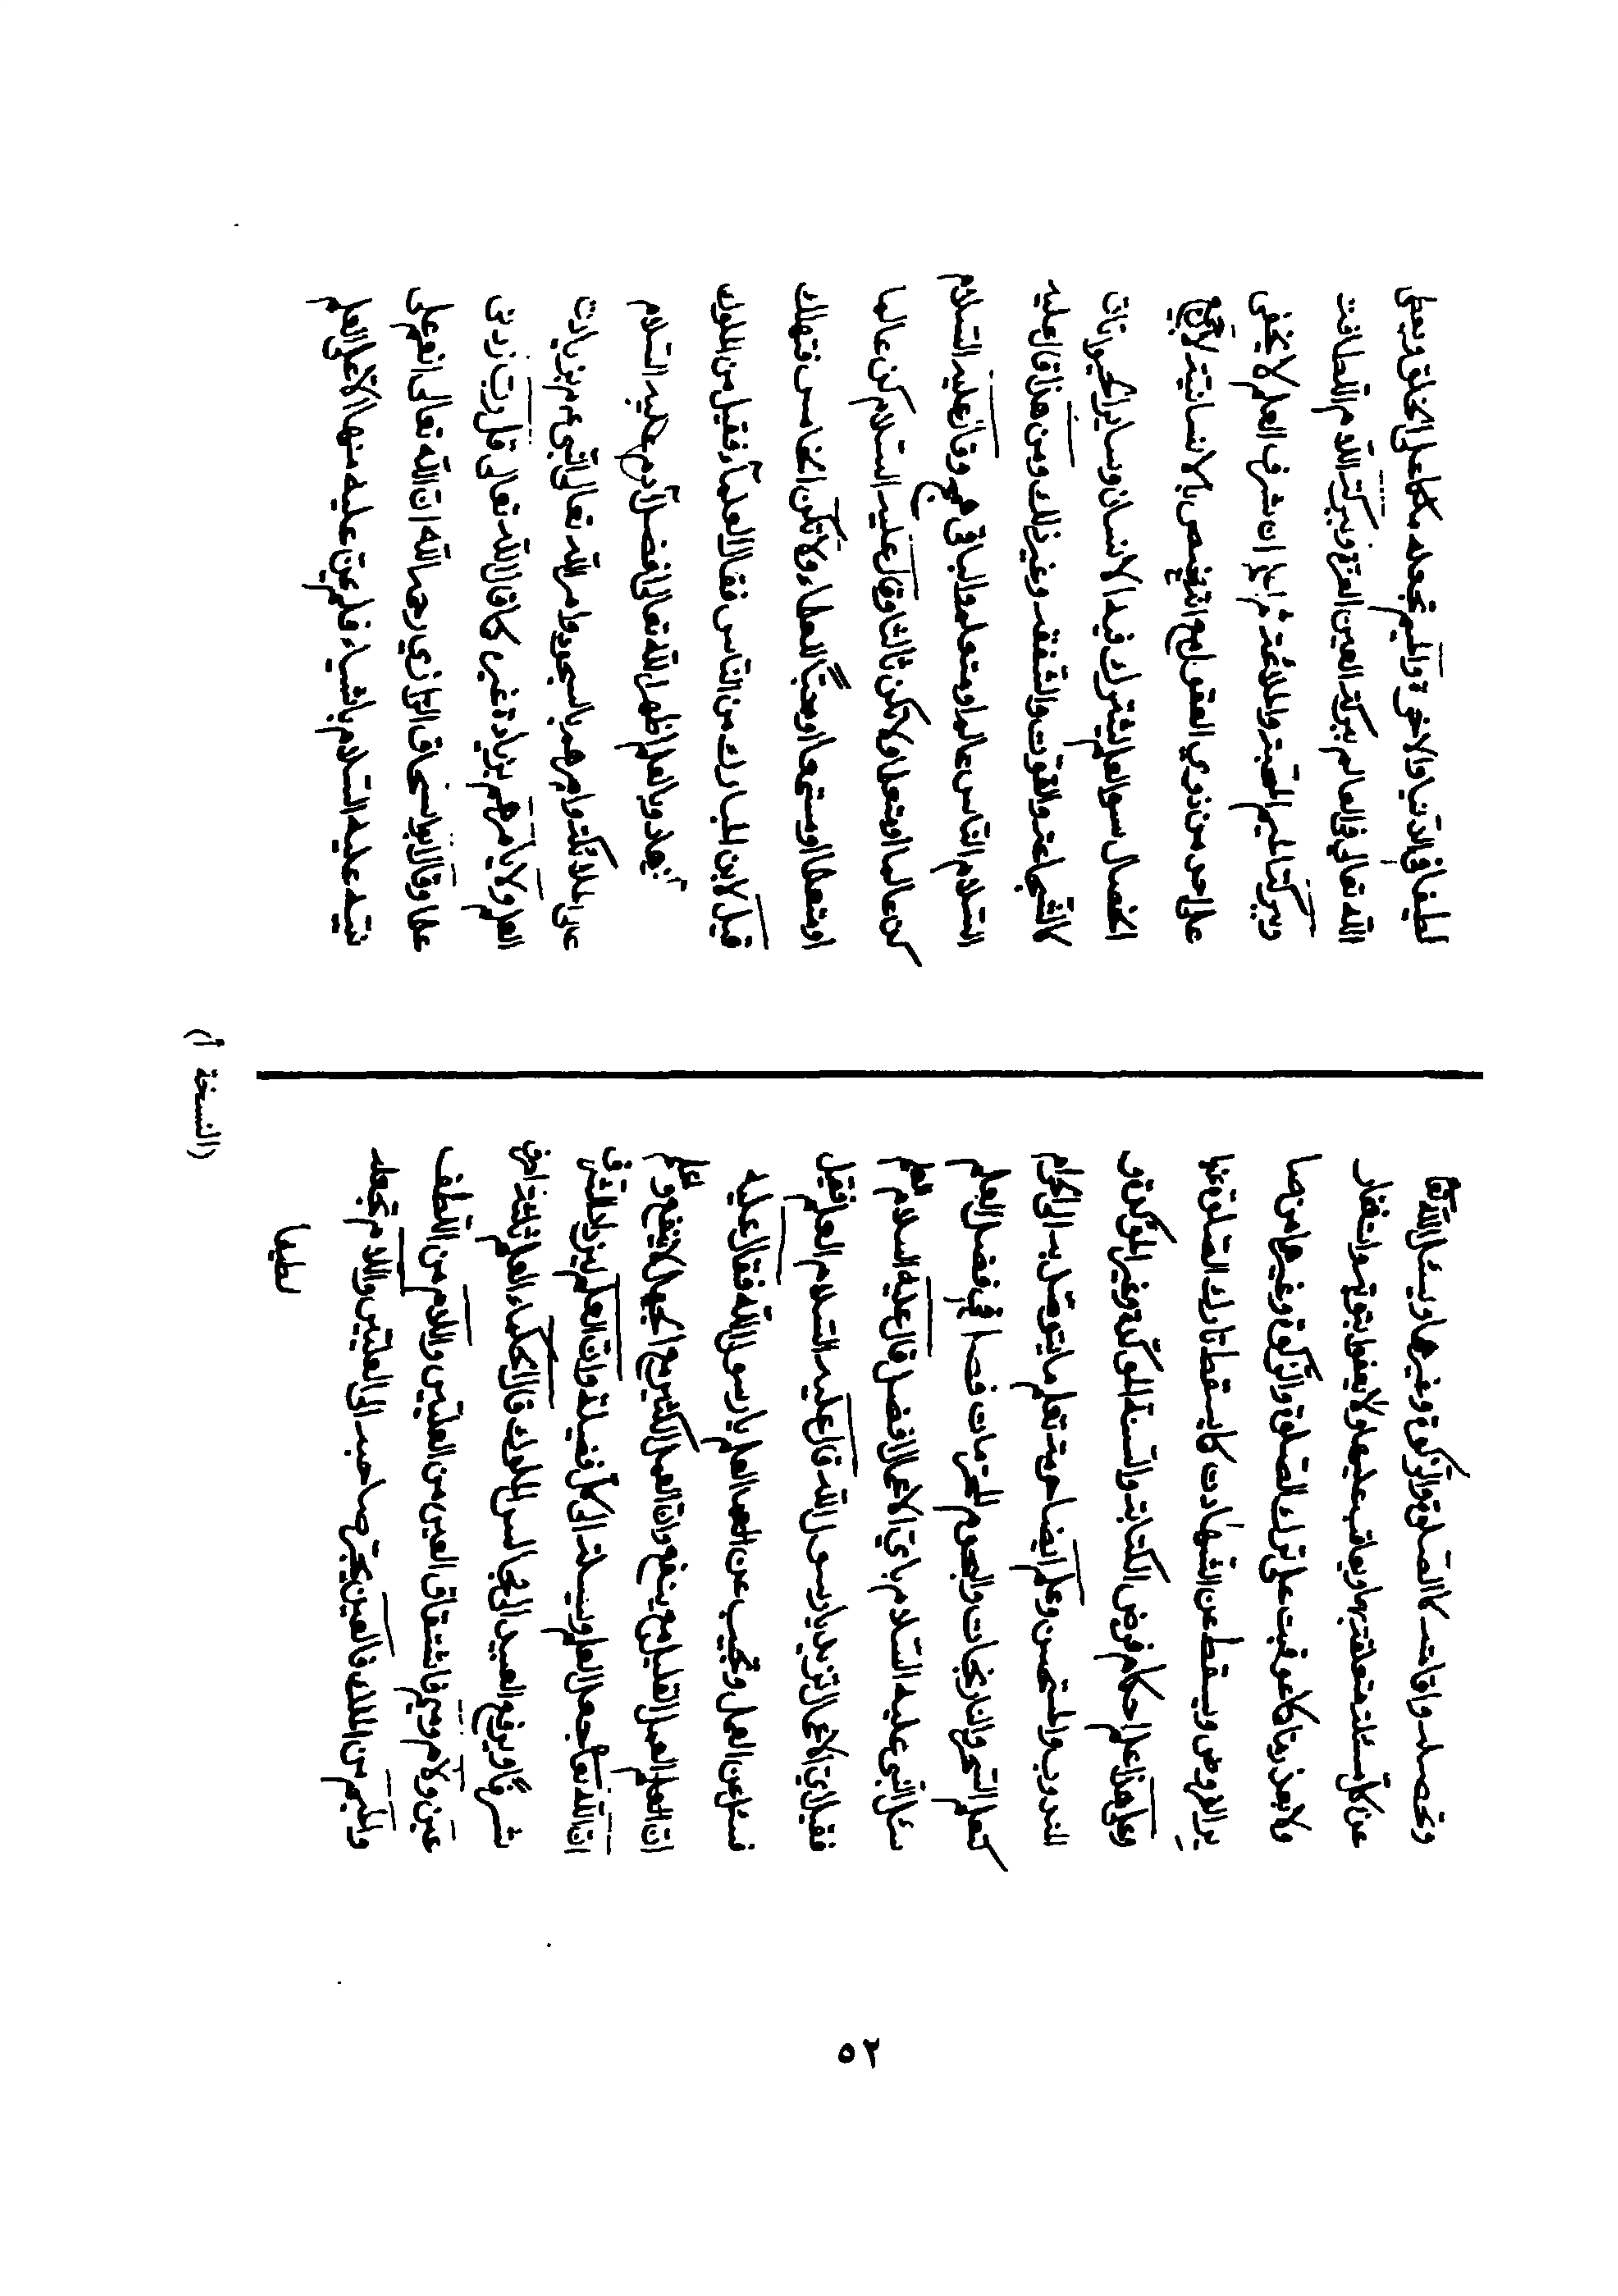 وتحصله واقاته كالصلوة والزكوة وغيرها ويسئل الله تعا
عن كل مسئلة متعلقة بها ويعاقب عليها ولا يعفو بتوبة واستغفار
ولا بعذر ما كما عوقبت على ترك الصلوة والزكوة وغيرها من سا
ير الفروض ويسقط عن الشهادت كما يسقط تارك الصلوة عنها
وعلى هذا علم احكام فرض الكفاية والسنة المؤكدة وغير المؤكدة و
المندوب والمستحسن وعلم ايضا حرمة تعلم ما يتوصل به الى الحرام
كتعلم السحر والنارنجات والنجوم المحرمات فصل في فضل العلم
سئل النبي عليه السلام باي الاعمال افضل قال عليه السلام العلم
فقيل اي الاعمال تريد يا رسول الله قال عليه السلام العلم فقيل
نسئل عن العمل وتجيب عن العلم يا رسول الله فقال عليه
ان العمل القليل مع العلم ينفع وان العمل الكثير مع الجهل لا ينفع وعلم
ان الله تعا جعل العلم وسيلة الى كل فضيلة وان العلم يزيد للشريف
شرفا ويرفع العبيد الى مجالس الملوك قال الحكماء العلم ثلثة احرف
عين ولام وميم فاشتقاق العين من العليين واللام من اللطف
والميم من الملك فالعين يجر صاحبه الى العليين واللام تجعله
لطيفا
لطيفا في الدنيا والآخرة والميم تجعله ملكا على الخلق ويعطى
الله تعالى في العالم ببركة العين العزة وببركة اللام اللطافة
وببركة الميم المحبة والملاغة ثم اعلم ان شرف العلم لا يخفى
على احد من ذوي العقول مع التخصيص بالانسانية لان جميع
الخصال سوى العلم يشترك فيه الانسان وساير الحيوانات
كالشجاعة والقوة والشفقة وغير ذلك ومن هذا قال عليه
السلام الناس عالم او متعلم والباقي همج وقال عليه السلام
كن عالما او متعلما ولا تكن ثالثا وقال عليه السلام كن عالما
او متعلما او مستمعا او محبا للعلماء ولا تكن الخامس فتهلك
قيل لابن المبارك من الناس فقال العلماء فقيل من الملوك
وبالعلم اظهر الله تعالى فضل آدم عليه السلام
على الملائكة وامرهم بالسجود له ولم يامر الله تعالى النبي عم بزيادة
العلم ولا يامرهم بزيادة غيره كما قال الله تعالى قل رب زدني
علما وقال ابو اسحاق الرازي رحمه الله ان الله تعالى انعم على
نبيه عليه السلام باشياء فلم يمن عليه منها الا على العلم
(النسخة أ)
٥٢